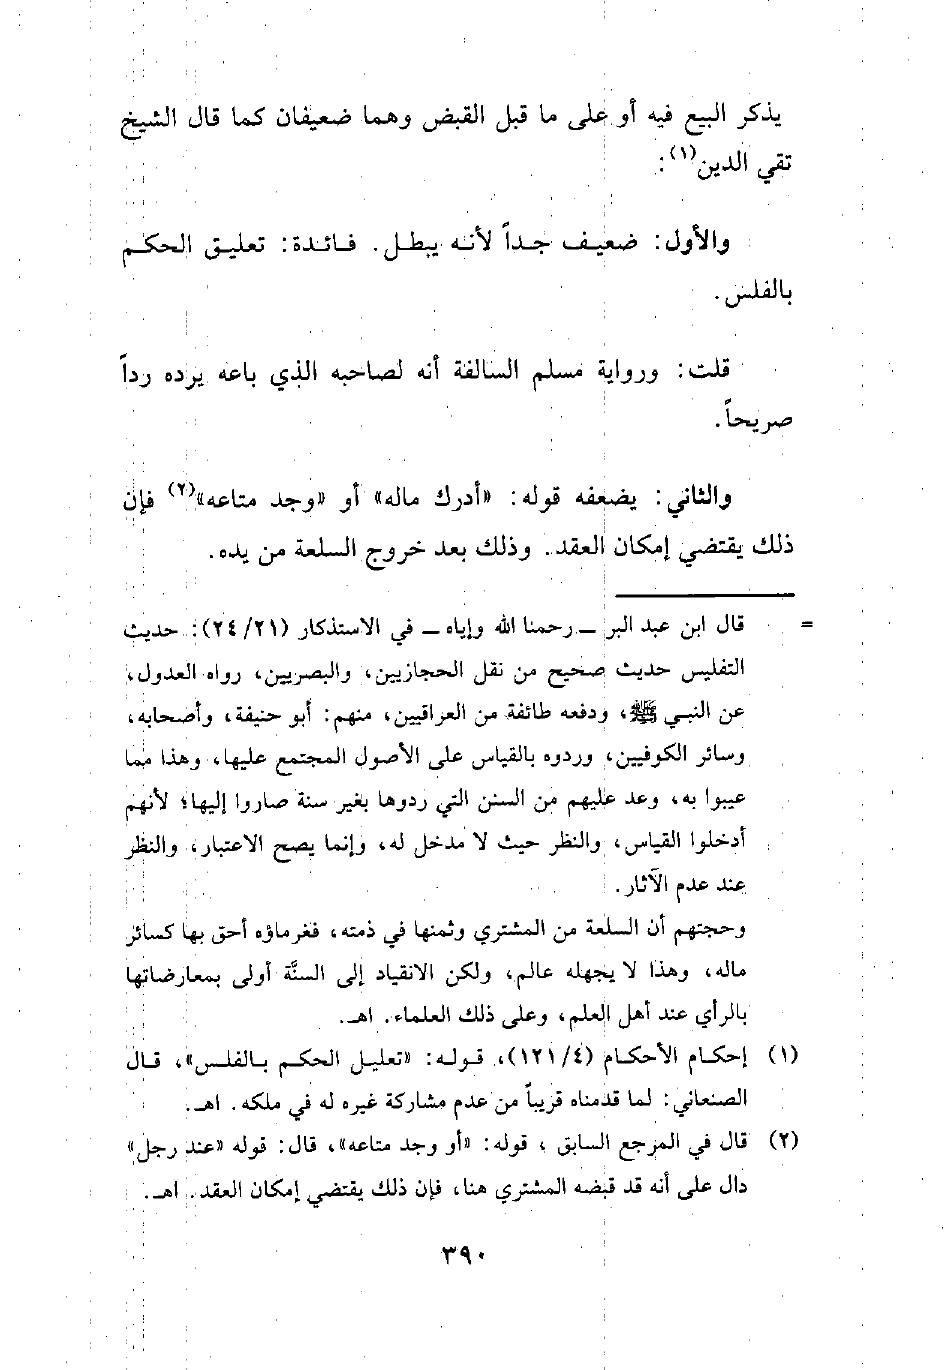 يذكر البيع فيه أو على ما قبل القبض وهما ضعيفان كما قال الشيخ
تقي الدين(١):
والأول: ضعيف جداً لأنه يبطل. فائدة: تعليق الحكم
بالفلس.
قلت: ورواية مسلم السالفة أنه لصاحبه الذي باعه يرده رداً
صريحاً.
والثاني: يضعفه قوله: «أدرك ماله» أو «وجد متاعه»(٢) فإن
ذلك يقتضي إمكان العقد. وذلك بعد خروج السلعة من يده.
= قال ابن عبد البر ــ رحمنا الله وإياه ــ في الاستذكار (٢٤/٢١): حديث
التفليس حديث صحيح من نقل الحجازيين، والبصريين، رواه العدول،
عن النبي ﷺ، ودفعه طائفة من العراقيين، منهم: أبو حنيفة، وأصحابه،
وسائر الكوفيين، وردوه بالقياس على الأصول المجتمع عليها، وهذا مما
عيبوا به، وعد عليهم من السنن التي ردوها بغير سنة صاروا إليها؛ لأنهم
أدخلوا القياس، والنظر حيث لا مدخل له، وإنما يصح الاعتبار، والنظر
عند عدم الآثار.
وحجتهم أن السلعة من المشتري وثمنها في ذمته، فغرماؤه أحق بها كسائر
ماله، وهذا لا يجهله عالم، ولكن الانقياد إلى السنَّة أولى بمعارضاتها
بالرأي عند أهل العلم، وعلى ذلك العلماء. اهـ.
(١) إحكام الأحكام (١٢١/٤)، قوله: «تعليل الحكم بالفلس»، قال
الصنعاني: لما قدمناه قريباً من عدم مشاركة غيره له في ملكه. اهـ.
(٢) قال في المرجع السابق ، قوله: «أو وجد متاعه»، قال: قوله «عند رجل»
دال على أنه قد قبضه المشتري هنا، فإن ذلك يقتضي إمكان العقد. اهـ.
٣٩٠